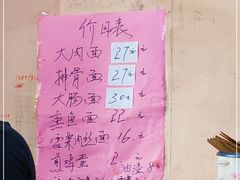 价目表
大肉面 27元
排骨面 27元
大肠面 30元
重庆面 22元
雪菜肉丝面 16元
煎鸡蛋 2元